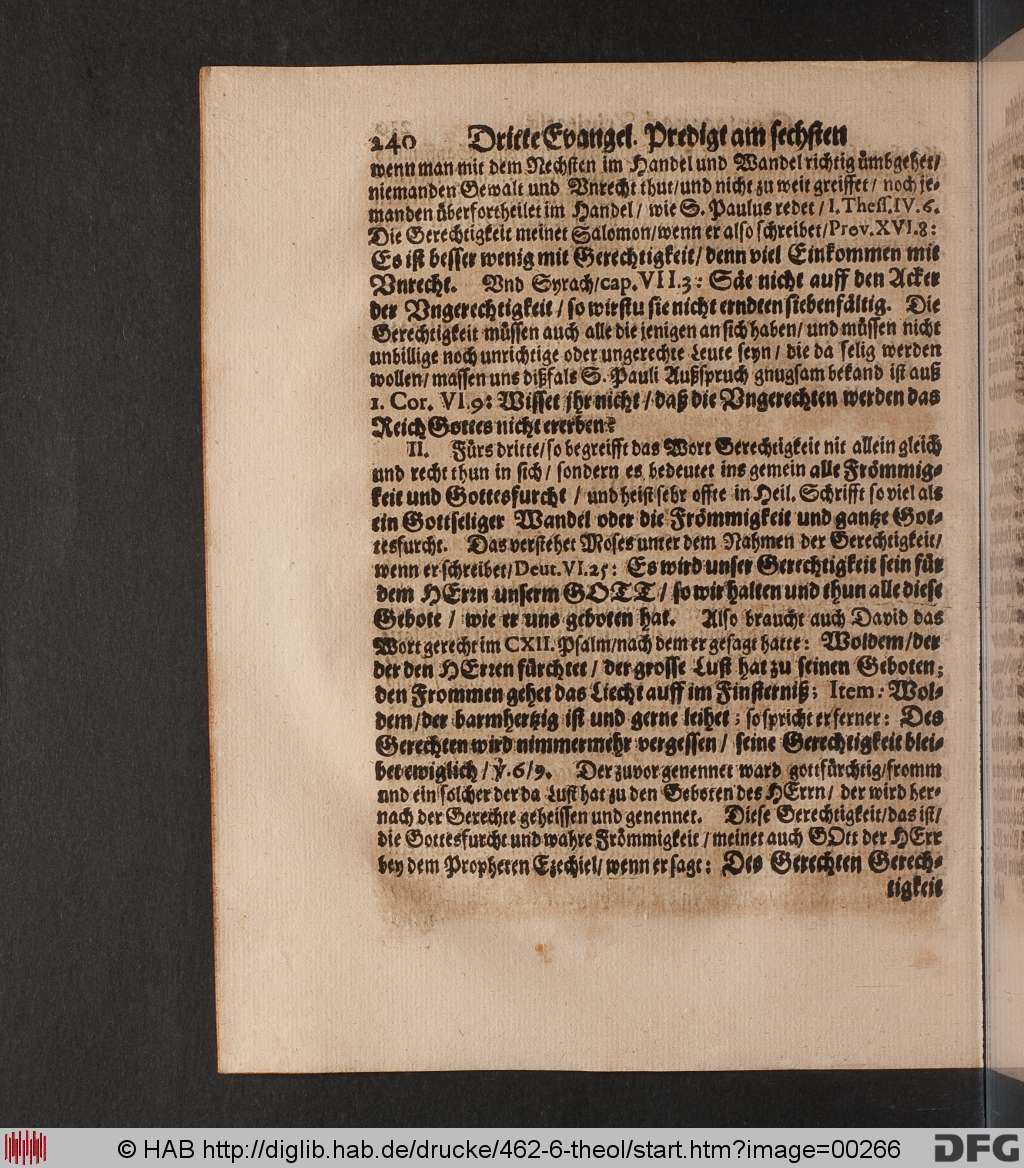 240 Dritte Evangel. Predigt am sechsten
wenn man mit dem Nechsten im Handel und Wandel richtig ümbgehet/
niemanden Gewalt und Vnrecht thut/und nicht zu weit greiffet/ noch je-
manden überfortheilet im Handel/ wie S. Paulus redet/I. Thess. IV. 6.
Die Gerechtigkeit meinet Salomon/wenn er also schreibet/Prov. XVI.8:
Es ist besser wenig mit Gerechtigkeit/denn viel Einkommen mit
Vnrecht. Vnd Syrach/cap. VII.3: Säe nicht auff den Acker
der Vngerechtigkeit/so wirstu sie nicht erndten siebenfältig. Die
Gerechtigkeit müssen auch alle die jenigen an sich haben/ und müssen nicht
unbillige noch unrichtige oder ungerechte Leute seyn/ die da selig werden
wollen/ massen uns dißfals S. Pauli Außspruch gnugsam bekand ist auß
1. Cor. VI.9: Wisset jhr nicht/daß die Vngerechten werden das
Reich Gottes nicht ererben?
II. Fürs dritte/so begreifft das Wort Gerechtigkeit nit allein gleich
und recht thun in sich/ sondern es bedeutet ins gemein alle Frömmig-
keit und Gottesfurcht / und heist sehr offte in Heil. Schrifft so viel als
ein Gottseliger Wandel oder die Frömmigkeit und gantze Got-
tesfurcht. Das verstehet Moses unter dem Nahmen der Gerechtigkeit/
wenn er schreibet/Deut. VI.25: Es wird unser Gerechtigkeit sein für
dem HErrn unserm GOTT/ so wir halten und thun alle diese
Gebote/ wie er uns geboten hat. Also braucht auch David das
Wort gerecht im CXII. Psalm/nach dem er gesagt hatte: Woldem/der
der den HErren fürchtet/ der grosse Lust hat zu seinen Geboten;
den Frommen gehet das Liecht auff im Finsterniß; Item: Wol-
dem/der barmhertzig ist und gerne leihet; so spricht er ferner: Des
Gerechten wird nimmermehr vergessen/ seine Gerechtigkeit blei-
bet ewiglich/ ℣.6/9. Der zuvor genennet ward gottfürchtig/fromm
und ein solcher der da Lust hat zu den Geboten des HErrn/ der wird her-
nach der Gerechte geheissen und genennet. Diese Gerechtigkeit/das ist/
die Gottesfurcht und wahre Frömmigkeit/meinet auch GOtt der HErr
bey dem Propheten Ezechiel/wenn er sagt: Des Gerechten Gerech-
tigkeit
© HAB http://diglib.hab.de/drucke/462-6-theol/start.htm?image=00266
DFG